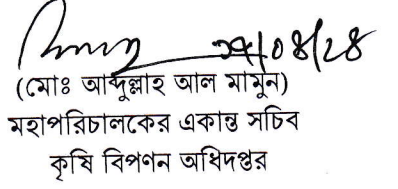 ২৫/০৪/২৪
(মোঃ আব্দুল্লাহ আল মামুন)
মহাপরিচালকের একান্ত সচিব
কৃষি বিপণন অধিদপ্তর